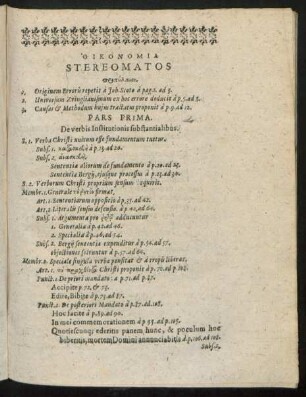 ΟΙΚΟΝΟΜΙΑ
STEREOMATOS
1. Originem Erroris repetit à Joh Scoto à pag. 1. ad 5.
2. Universum Zvinglianismum ex hoc errore deducit à p. 5. ad 8.
3. Causas & Methodum hujus tractatus proponit à p. 9. ad 12.
PARS PRIMA.
De verbis Institutionis substantialibus.
S. 1. Verba Christi unicum esse fundamentum tuetur.
Subs. 1. à p. 13. ad 20.
Subs. 2.
Sententia aliorum de fundamento à p. 20. ad 23.
Sententia Bergij, ejusque processus à p. 23. ad 30.
S. 2. Verborum Christi proprium sensum
Membr. 1. Generale
Art. 1. Sententiarum oppositio à p. 37. ad 42.
Art. 2 Literalis sensus defensio. à p. 42. ad 60.
Subs. 1. Argumenta pro adducuntur
1. Generalia à p. 42. ad 46.
2. Specialia à p. 46. ad 54.
Subs. 2. Bergij sententia expenditur à p. 54. ad 57.
objectiones solvuntur à p. 57. ad 60.
Membr. 2. Speciale singula verba pensitat & à tropis liberat.
Art. 1. Christi proponit à p. 70. ad p. 105.
Punct. 1 De priori mandato: à p. 71. ad p. 87.
Accipite p. 72. & 73.
Edite, Bibite à p. 73. ad 87.
Punct. 2. De posteriori Mandato à p. 87. ad 105.
Hoc facite à p. 89. ad 90.
In mei commemorationem à p. 95. ad p. 105.
Quotiescunque ederitis panem hunc, & poculum hoc
biberitis, mortem Domini annunciabitis à p. 106. ad 108.